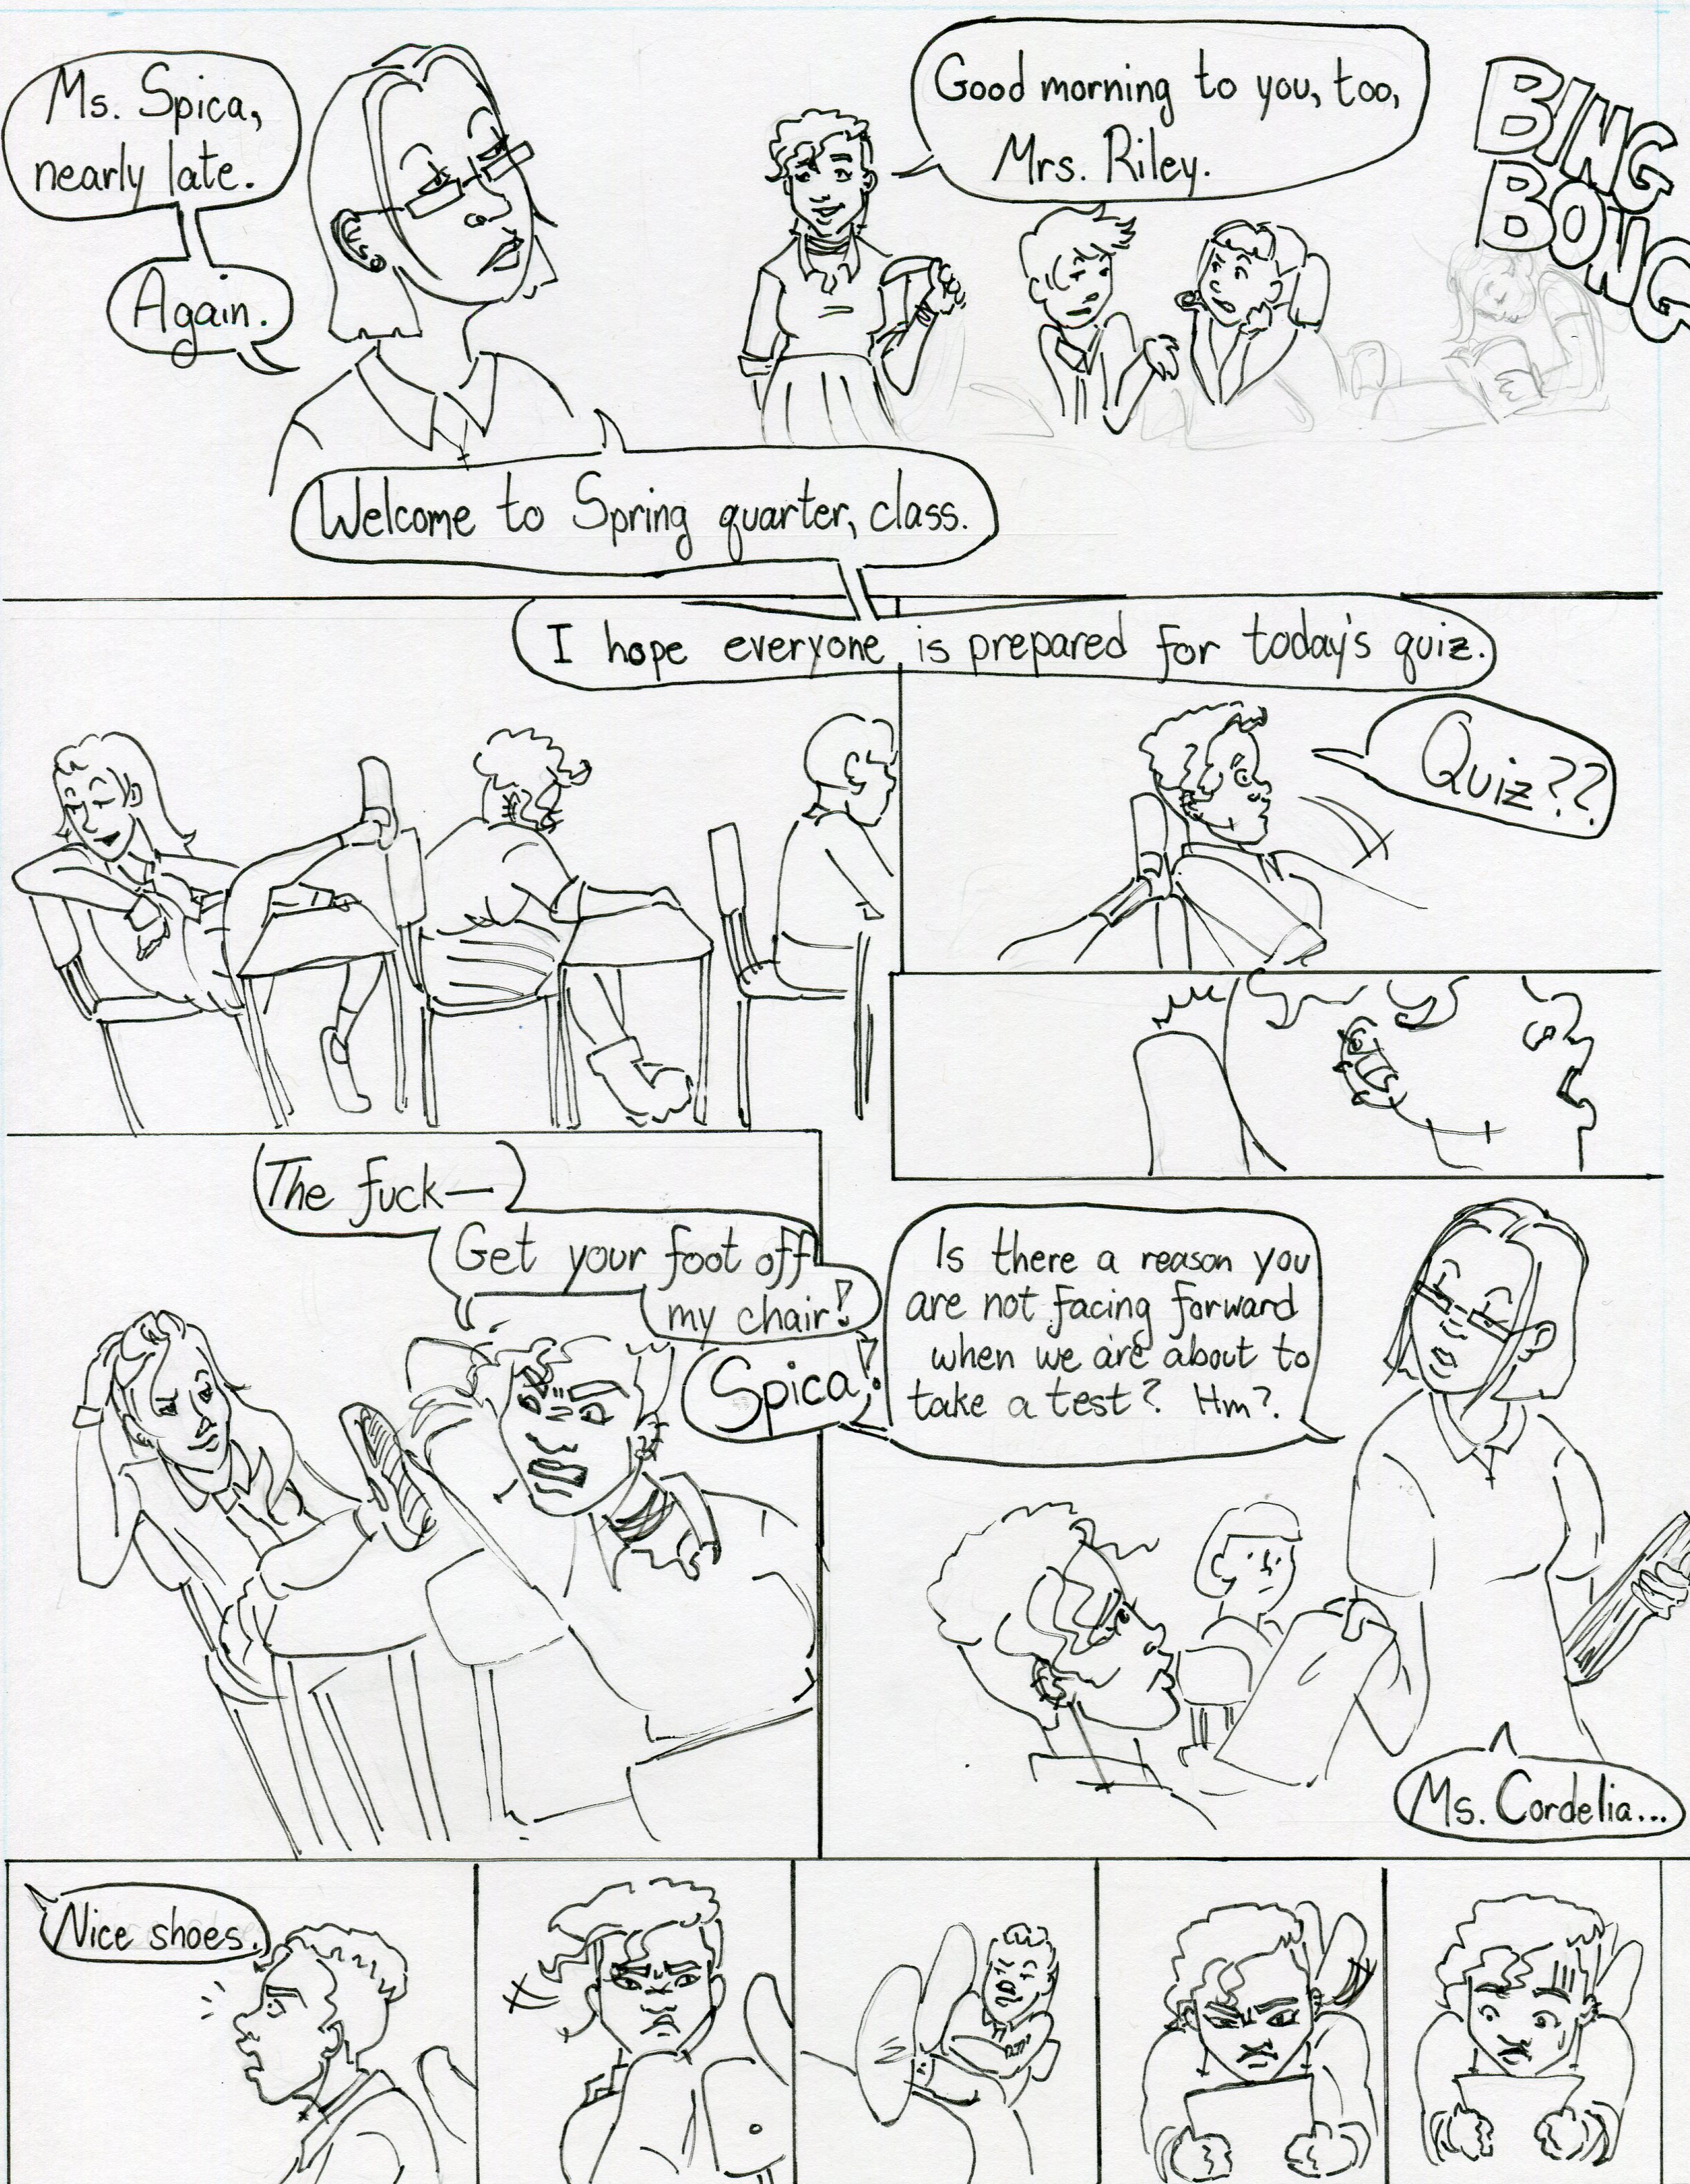 Ms. Spica,
nearly late.
Again.
Good morning to you, too,
Mrs. Riley.
BING
BONG
Welcome to Spring quarter, class.
I hope everyone is prepared for today's quiz.
Quiz??
The fuck—
Get your foot off
my chair!
Spica!
Is there a reason you
are not facing forward
when we are about to
take a test? Hm?
Ms. Cordelia...
Nice shoes.